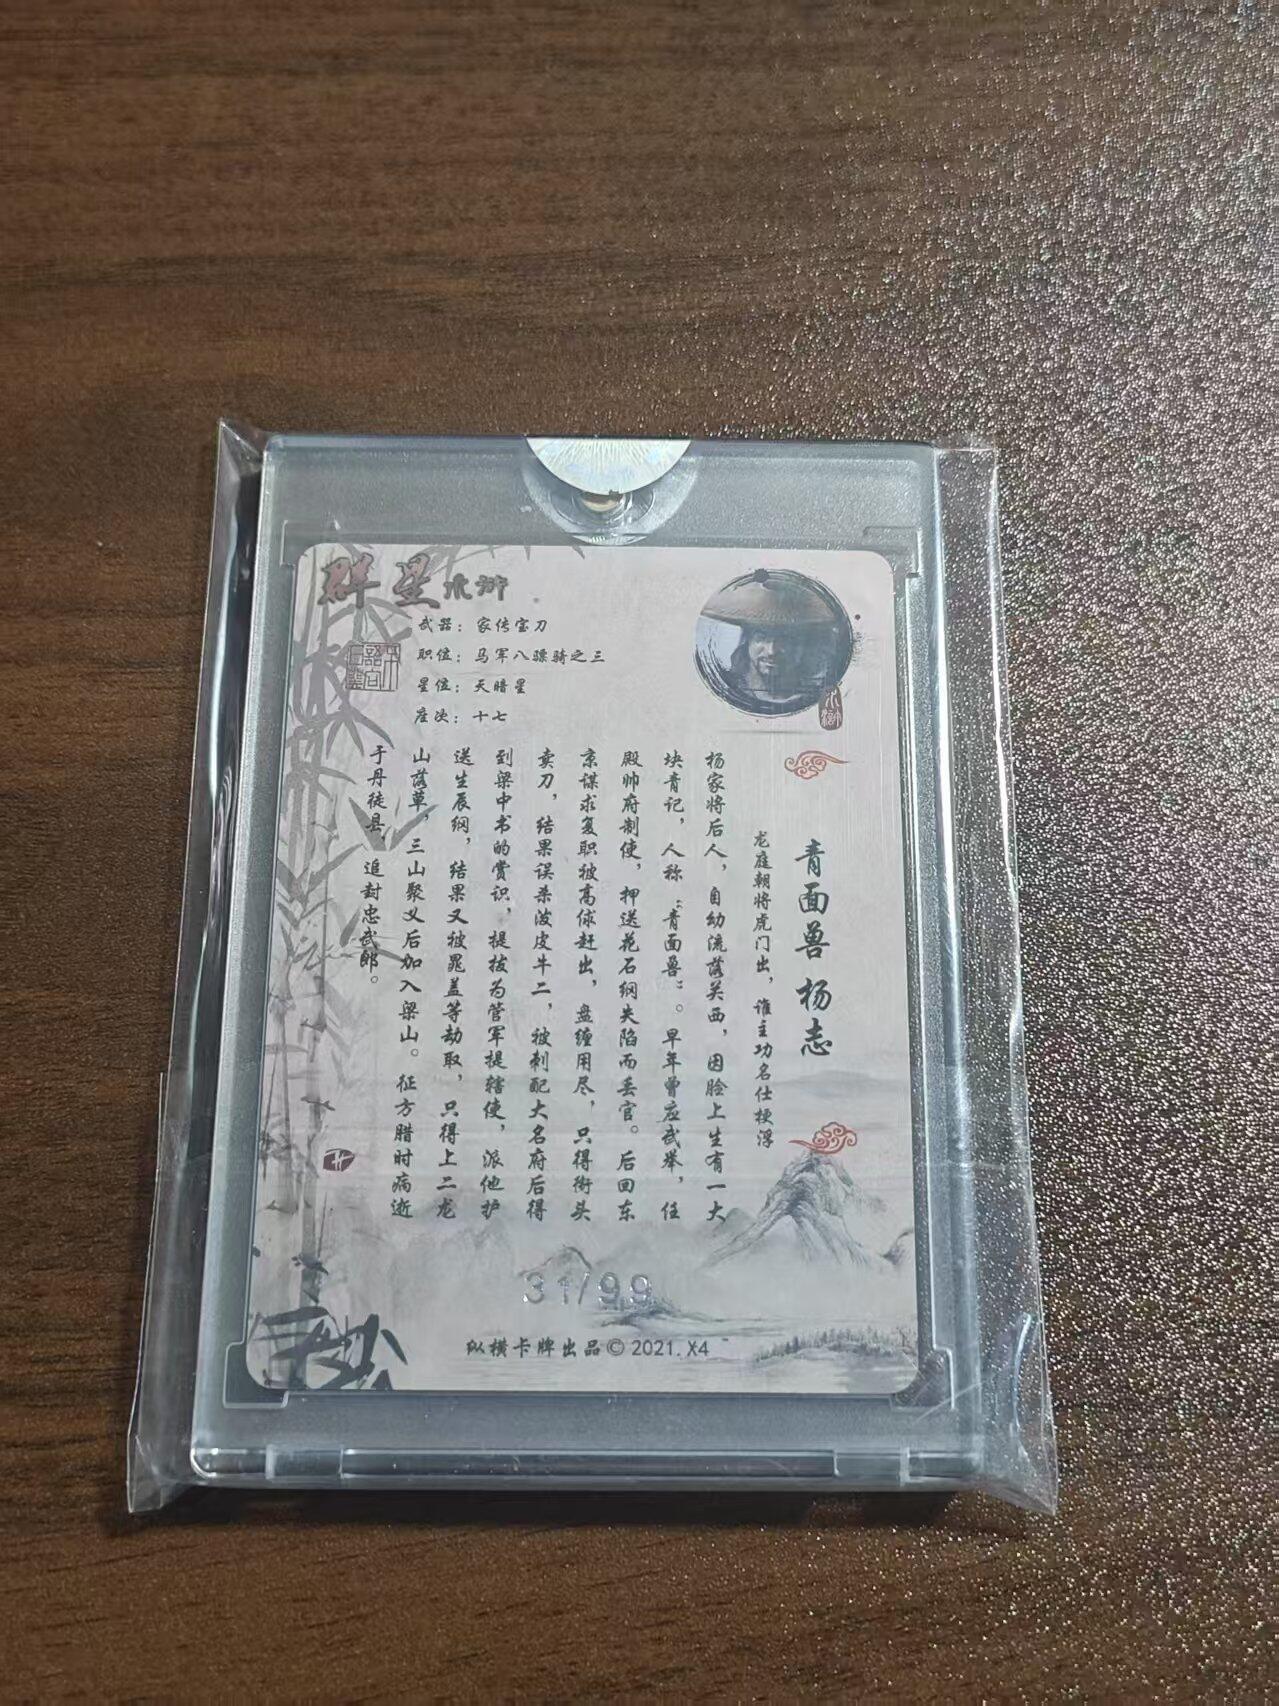 群星水浒
武器：家传宝刀
职位：马军八骠骑之三
星位：天暗星
座次：十七
水浒
青面兽 杨志
龙庭朝将虎门出，谁主功名仕梗浮
杨家将后人，自幼流落关西，因脸上生有一大
块青记，人称“青面兽”。早年曾应武举，任
殿帅府制使，押送花石纲失陷而丢官。后回东
京谋求复职被高俅赶出，盘缠用尽，只得街头
卖刀，结果误杀泼皮牛二，被刺配大名府后得
到梁中书的赏识，提拔为管军提辖使，派他护
送生辰纲，结果又被晁盖等劫取，只得上二龙
山落草，三山聚义后加入梁山。征方腊时病逝
于丹徒县，追封忠武郎。
31/99
纵横卡牌出品© 2021.X4